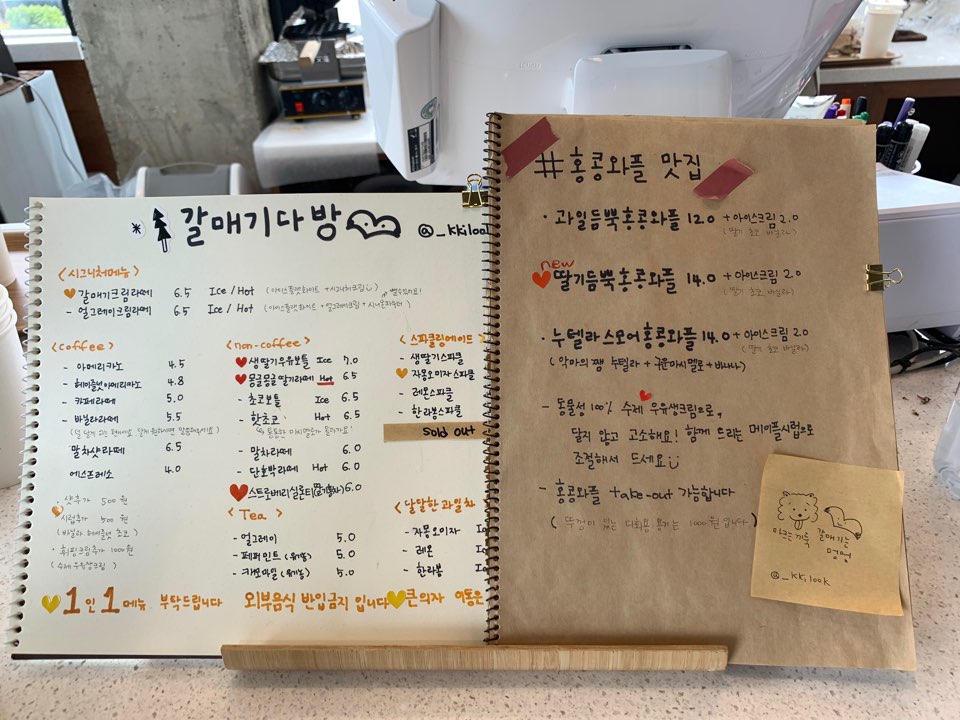 갈매기다방
@_kkilook
<시그니처메뉴>
갈매기크림라떼 6.5 Ice / Hot (아이스플랫화이트 + 시그니처크림)
- 얼그레이크림라떼 6.5 Ice / Hot (아이스플랫화이트 + 얼그레이크림 + 시나몬파우더)
<coffee>
- 아메리카노 4.5
- 헤이즐넛아메리카노 4.8
- 카페라떼 5.0
- 바닐라라떼 5.5
말차샷라떼 6.5
에스프레소 4.0
샷추가 500원
시럽추가 500원
(바닐라 헤이즐넛 초코)
휘핑크림추가 1000원
(수제 우유생크림)
<non-coffee>
생딸기우유보틀 Ice 7.0
몽글몽글딸기라떼 Hot 6.5
- 초코보틀 Ice 6.5
- 핫초코 Hot 6.5
- 말차라떼 6.0
- 단호박라떼 Hot 6.0
스트로베리실론티(딸기홍차) 6.0
<Tea>
- 얼그레이 5.0
- 페퍼민트 (유기농) 5.0
- 캐모마일 (유기농) 5.0
<스파클링에이드>
- 생딸기스파클
자몽오미자스파클
- 레몬스파클
- 한라봉스파클
sold out
<달달한 과일차
- 자몽오미자
- 레몬
- 한라봉
1인 1메뉴 부탁드립니다 외부음식 반입금지 입니다 큰의자 이동은
#홍콩와플 맛집
· 과일듬뿍홍콩와플 12.0 + 아이스크림 2.0
(딸기 초코 바닐라)
new
딸기듬뿍홍콩와플 14.0 + 아이스크림 2.0
(딸기 초코 바닐라)
· 누텔라스모어홍콩와플 14.0 + 아이스크림 2.0
(딸기 초코 바닐라)
(악마의 잼 누텔라 + 구운마시멜로 + 바나나)
- 동물성 100% 수제 우유생크림으로,
달지 않고 고소해요! 함께 드리는 메이플시럽으로
조절해서 드세요
- 홍콩와플 take-out 가능합니다
(뚜껑이 있는 다회용 용기는 1000원 입니다)
갈매기는
멍멍
@_kkilook